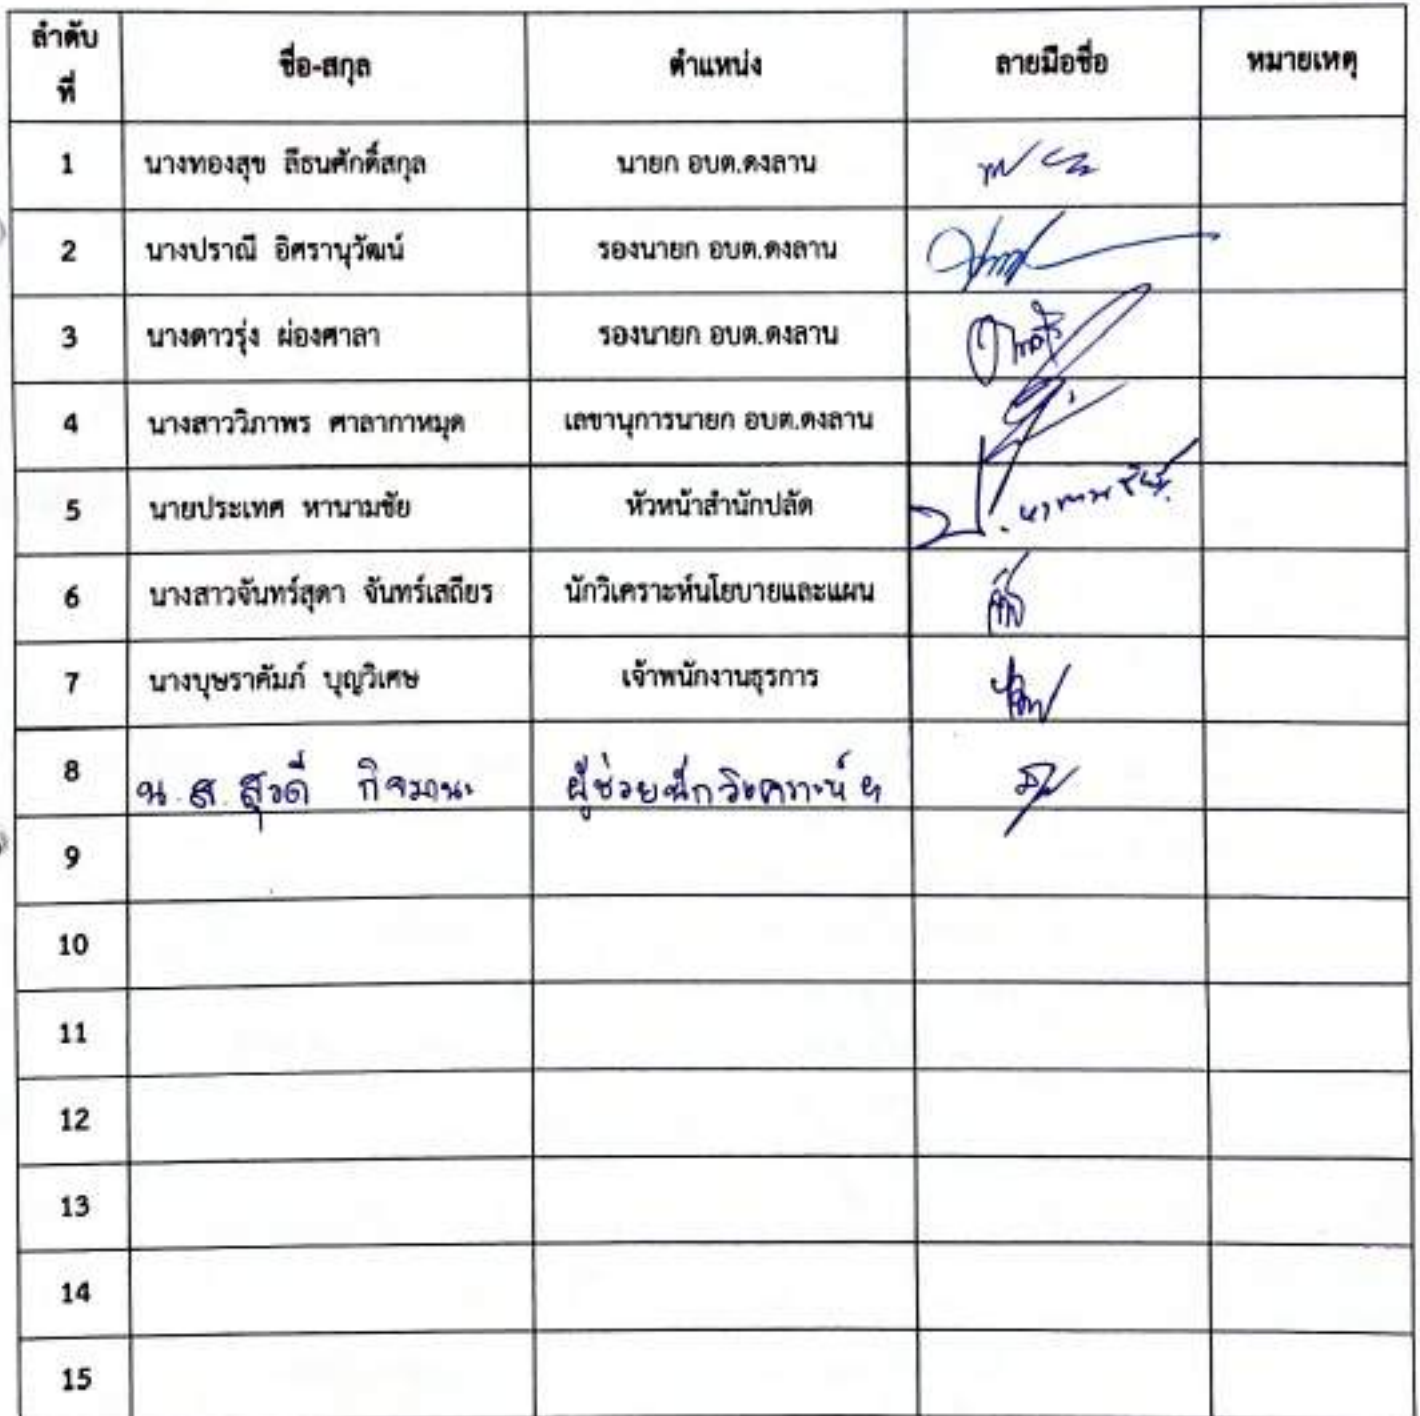 ลำดับที่ ชื่อ-สกุล ตำแหน่ง ลายมือชื่อ หมายเหตุ
1 นางทองสุข ลีธนศักดิ์สกุล นายก อบต.ดงลาน
2 นางปราณี อิศรานุวัฒน์ รองนายก อบต.ดงลาน
3 นางดาวรุ่ง ผ่องศาลา รองนายก อบต.ดงลาน
4 นางสาววิภาพร ศาลากาหมุด เลขานุการนายก อบต.ดงลาน
5 นายประเทศ หานามชัย หัวหน้าสำนักปลัด
6 นางสาวจันทร์สุดา จันทร์เสถียร นักวิเคราะห์นโยบายและแผน
7 นางบุษราคัมภ์ บุญวิเศษ เจ้าพนักงานธุรการ
8 น.ส. ผู้ช่วยนักวิเคราะห์ฯ
9
10
11
12
13
14
15